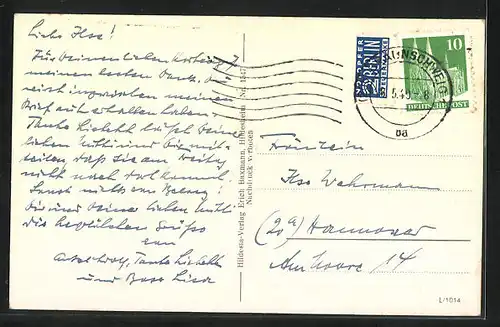 Liebe Ilse!
Für Deinen lieben Kartengruß
meinen besten Dank. Du
wirst inzwischen meinen
Brief erhalten haben.
Tante Lisbeth läßt Deine
liebe Mutti
teilen, daß sie am Freitag
nicht nach dort kommt.
Sonst nichts von Belang!
Dir und Deiner lieben Mutti
die herzlichsten Grüße
von
Tante Lisbeth
und
Hildesia-Verlag Erich Buxmann, Hildesheim Nr. 1347
Nachdruck verboten
NOTOPFER
2 BERLIN
STEUERMARKE
BRAUNSCHWEIG
10
DEUTSCHE POST
Fräulein
Ilse Wehrmann
(20a) Hannover
Am Moore 14
L/1014